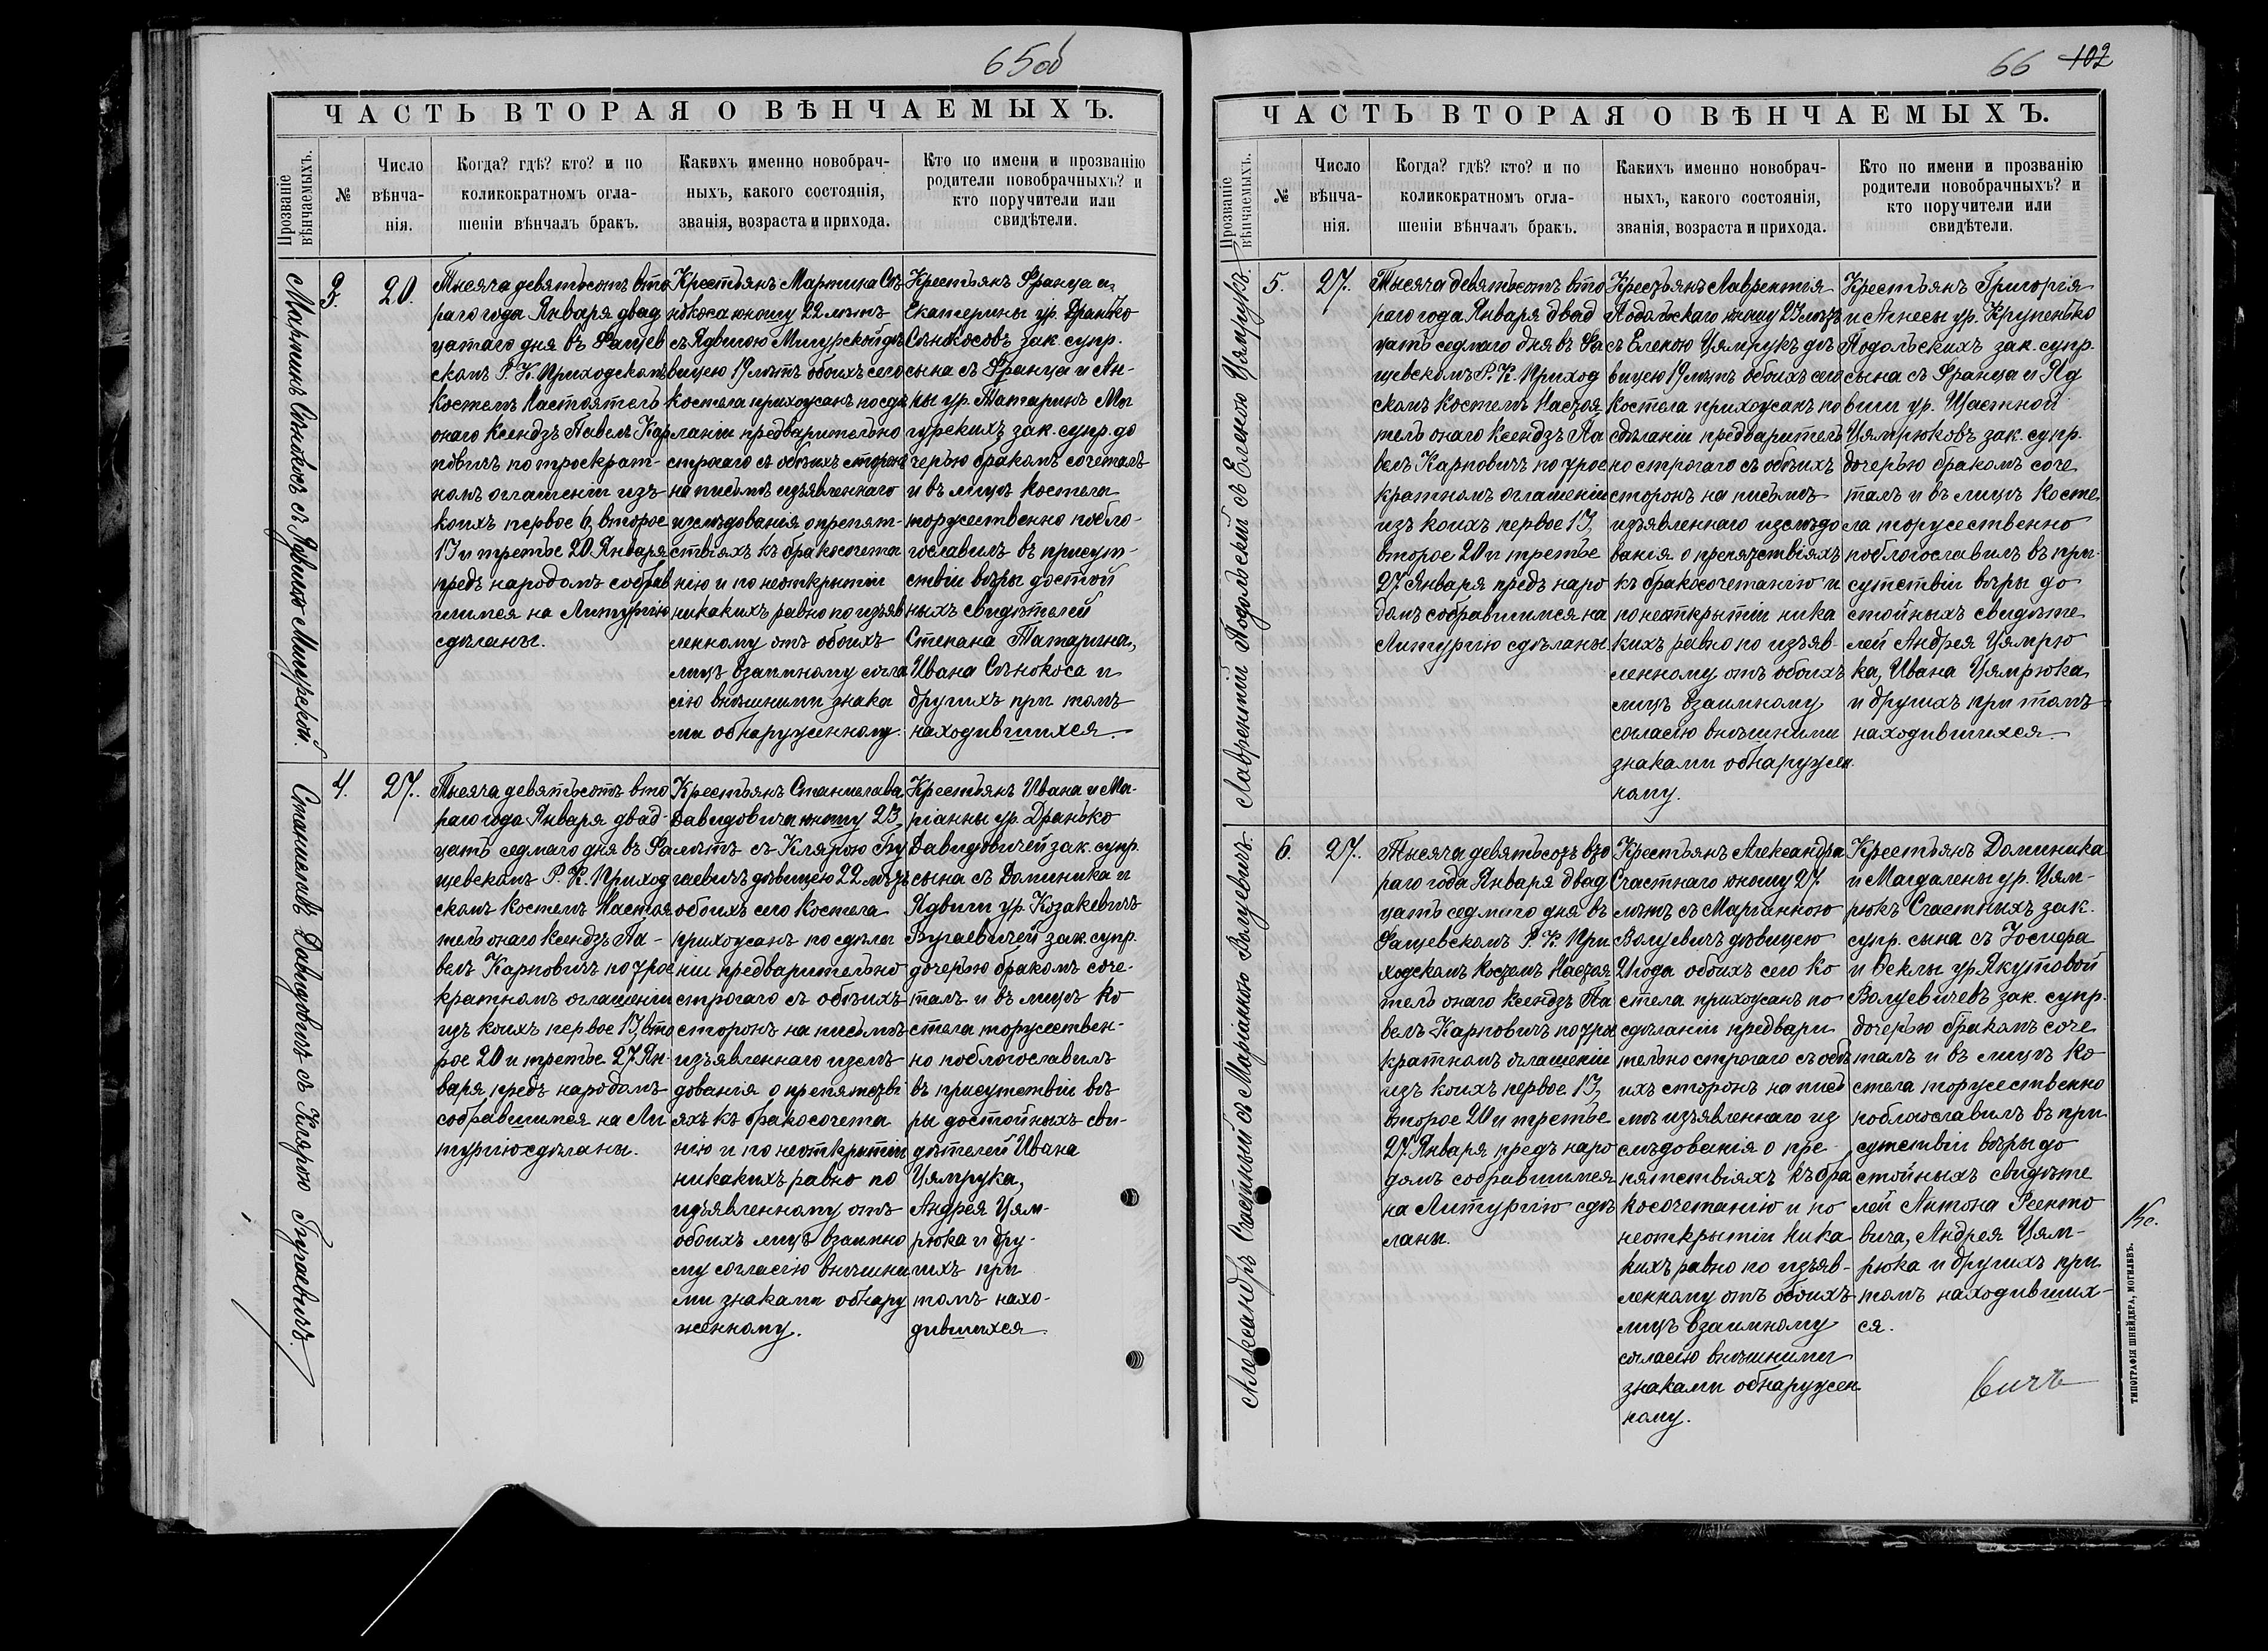 65об
ЧАСТЬ ВТОРАЯ О ВѢНЧАЕМЫХЪ.
Прозваніе вѣнчаемыхъ.
№
Число вѣнча-нія.
Когда? гдѣ? кто? и по
коликократномъ огла-
шеніи вѣнчалъ бракъ.
Какихъ именно новобрач-
ныхъ, какого состоянія,
званія, возраста и прихода.
Кто по имени и прозванію
родители новобрачныхъ? и
кто поручители или
свидѣтели.
Мартинъ Сѣнокосъ съ Ядвигою Мигурскій.
3.
20.
Тысяча девятьсотъ вто
раго года Января двад
цатаго дня въ Фащев
скомъ Р. К. Приходскомъ
Костелѣ Настоятель
онаго Ксендзъ Павелъ Кар
повичъ по троекрат-
номъ оглашеніи изъ
коихъ первое 6, второе
13 и третье 20 Января
предъ народомъ собрав
шимся на Литургію
сдѣланы.
Крестьянъ Мартина Сѣ
нокоса юношу 22 лѣтъ
съ Ядвигою Мигурской дѣ
вицею 19 лѣтъ обоихъ сего
костела прихожанъ по сдѣ
ланіи предварительно
строгаго съ обѣихъ сторонъ
на письмѣ изъявленнаго
изслѣдованія о препят-
ствіяхъ къ бракосочета
нію и по неоткрытіи
никакихъ равно по изъяв
ленному отъ обоихъ
лицъ взаимному согла
сію внѣшними знака
ми обнаруженному.
Крестьянъ Франца и
Екатерины ур. Дранько
Сѣнокосовъ зак. супр.
сына съ Франца и Ан-
ны ур. Татаринъ Ми
гурскихъ зак. супр. до
черью бракомъ сочеталъ
и въ лицѣ костела
торжественно побло-
гославилъ въ присут-
ствіи вѣры достой
ныхъ свидѣтелей
Степана Татарина,
Ивана Сѣнокоса и
другихъ при томъ
находившихся.
Станиславъ Давидовичъ съ Клярою Бугаевичъ.
4.
27.
Тысяча девятьсотъ вто
раго года Января двад-
цать седмаго дня въ Фа
щевскомъ Р. К. Приход
скомъ Костелѣ Настоя
тель онаго Ксендзъ Па-
велъ Карповичъ по трое
кратномъ оглашеніи
изъ коихъ первое 13, вто
рое 20 и третье 27 Ян-
варя предъ народомъ
собравшимся на Ли
тургію сдѣланы.
Крестьянъ Станислава
Давидовича юношу 23
лѣтъ съ Клярою Бу
гаевичъ дѣвицею 22 лѣтъ
обоихъ сего костела
прихожанъ по сдѣла
ніи предварительно
строгаго съ обѣихъ
сторонъ на письмѣ
изъявленнаго изслѣ
дованія о препятстві
яхъ къ бракосочета
нію и по неоткрытіи
никакихъ равно по
изъявленному отъ
обоихъ лицъ взаимно
му согласію внѣшни
ми знаками обнару
женному.
Крестьянъ Ивана и Ма-
ріанны ур. Дранько
Давидовичей зак. супр.
сына съ Доминика и
Ядвиги ур. Козакевичъ
Бугаевичей зак. супр.
дочерью бракомъ соче-
талъ и въ лицѣ ко
стела торжествен-
но поблогославилъ
въ присутствіи вѣ-
ры достойныхъ сви-
дѣтелей Ивана
Цямрука,
Андрея Цям-
рюка и дру-
гихъ при
томъ нахо-
дившихся
66 102
ЧАСТЬ ВТОРАЯ О ВѢНЧАЕМЫХЪ.
Прозваніе вѣнчаемыхъ.
№
Число вѣнча-нія.
Когда? гдѣ? кто? и по
коликократномъ огла-
шеніи вѣнчалъ бракъ.
Какихъ именно новобрач-
ныхъ, какого состоянія,
званія, возраста и прихода.
Кто по имени и прозванію
родители новобрачныхъ? и
кто поручители или
свидѣтели.
Лаврентій Подольскій съ Еленою Цямрукъ.
5.
27.
Тысяча девятьсотъ вто
раго года Января двад
цать седмаго дня въ Фа
щевскомъ Р. К. Приход
скомъ Костелѣ Настоя
тель онаго Ксендзъ Па
велъ Карповичъ по трое
кратномъ оглашеніи
изъ коихъ первое 13,
второе 20 и третье
27 Января предъ наро
домъ собравшимся на
Литургію сдѣланы
Крестьянъ Лаврентія
Подольскаго юношу 23 лѣтъ
съ Еленою Цямрукъ дѣ
вицею 19 лѣтъ обоихъ сего
Костела прихожанъ по
сдѣланіи предваритель
но строгаго съ обѣихъ
сторонъ на письмѣ
изъявленнаго изслѣдо
ванія о препятствіяхъ
къ бракосочетанію и
по неоткрытіи ника
кихъ равно по изъяв-
ленному отъ обоихъ
лицъ взаимному
согласію внѣшними
знаками обнаружен
ному.
Крестьянъ Григорія
и Агнесы ур. Крупенько
Подольскихъ зак. супр.
сына съ Франца и Яд
виги ур. Щастной
Цямрюковъ зак. супр.
дочерью бракомъ соче
талъ и въ лицѣ Косте
ла торжественно
поблогославилъ въ при-
сутствіи вѣры до
стойныхъ свидѣте
лей Андрея Цямрю
ка, Ивана Цямрюка
и другихъ при томъ
находившихся.
Александръ Счастный съ Маріанною Волуевичъ.
6.
27.
Тысяча девятьсотъ вто
раго года Января двад
цать седмаго дня въ
Фащевскомъ Р. К. При
ходскомъ Костелѣ Настоя
тель онаго Ксендзъ Па
велъ Карповичъ по трое
кратномъ оглашеніи
изъ коихъ первое 13,
второе 20 и третье
27 Января предъ наро
домъ собравшимся
на Литургію сдѣ
ланы.
Крестьянъ Александра
Счастнаго юношу 27
лѣтъ съ Маріанною
Волуевичъ дѣвицею
21 года обоихъ сего Ко
стела прихожанъ по
сдѣланіи предвари
тельно строгаго съ обѣ
ихъ сторонъ на пись
мѣ изъявленнаго из
слѣдованія о пре-
пятствіяхъ къ бра
косочетанію и по
неоткрытіи ника
кихъ равно по изъяв-
ленному отъ обоихъ
лицъ взаимному
согласію внѣшними
знаками обнаружен
ному.
Крестьянъ Доминика
и Магдалены ур. Цям-
рюкъ Счастныхъ зак.
супр. сына съ Іосифа
и Феклы ур. Якутовой
Волуевичевъ зак. супр.
дочерью бракомъ соче
талъ и въ лицѣ Ко
стела торжественно
поблогославилъ въ при
сутствіи вѣры до
стойныхъ свидѣте
лей Антона Ренто
вича, Андрея Цям-
рюка и другихъ при
томъ находивших-
ся.
вичъ
ТИПОГРАФІЯ ШНЕЙДЕРА, МОГИЛЕВЪ.